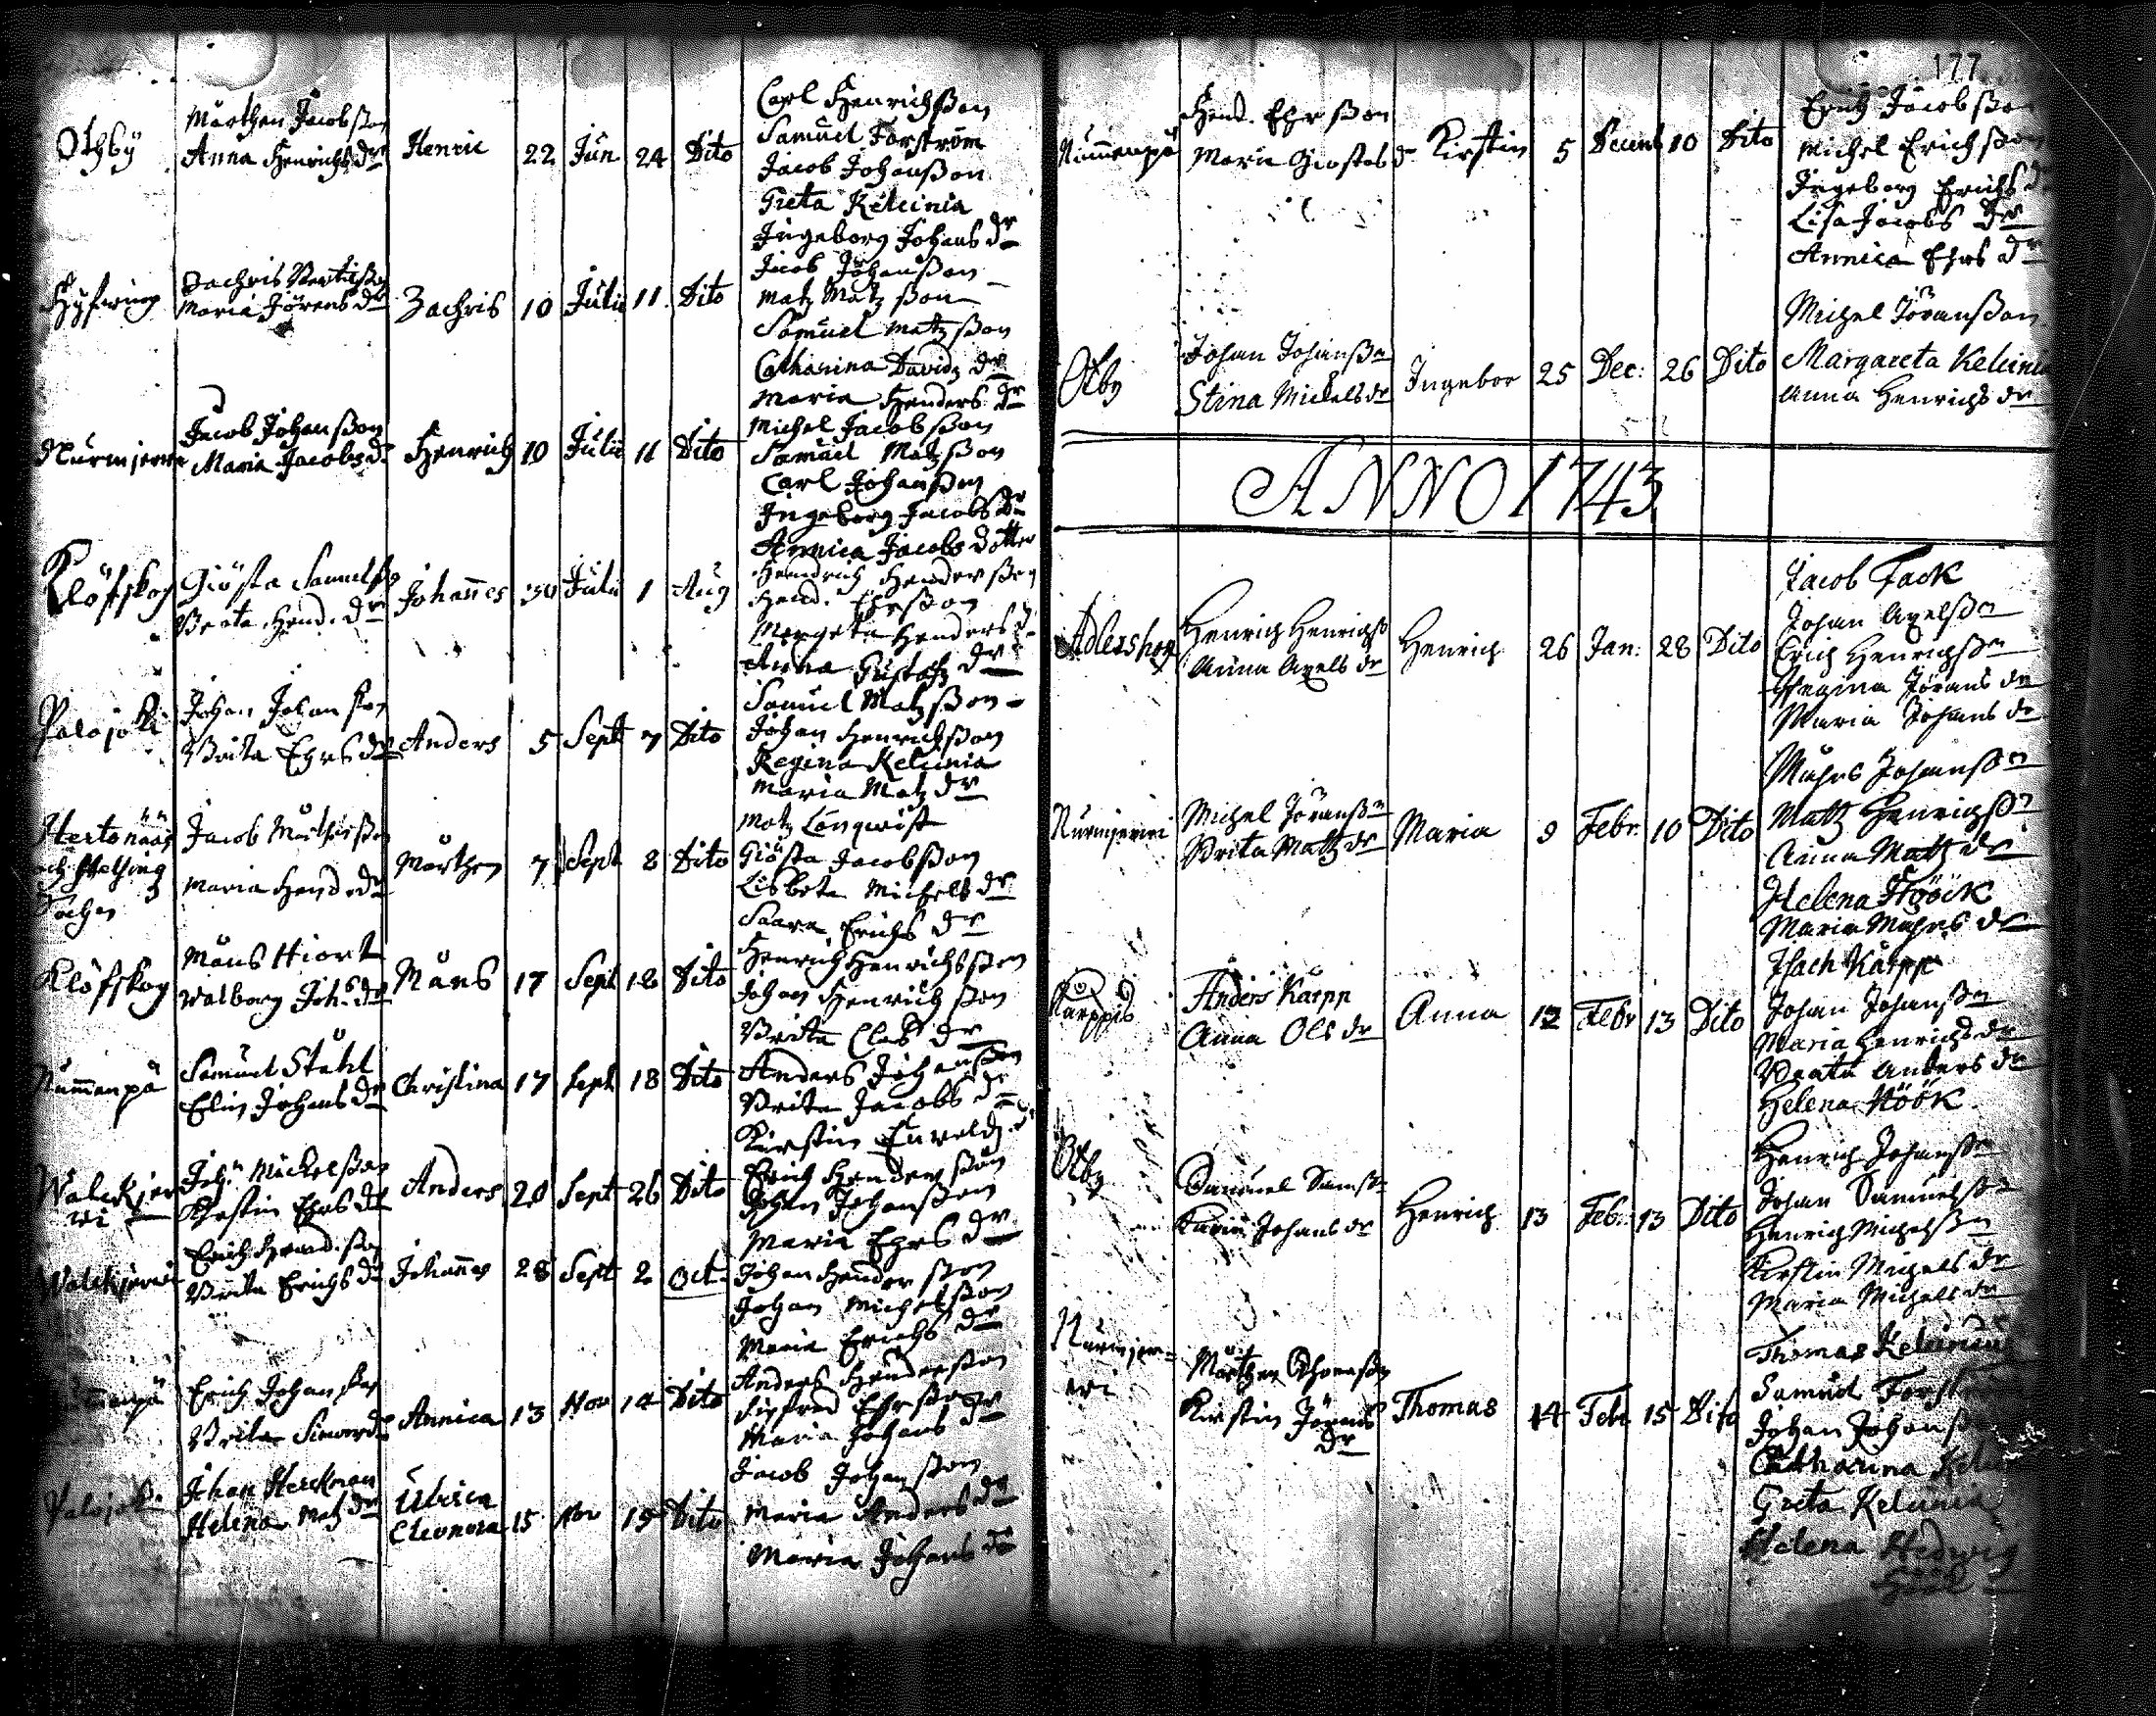 Othby
Mårthen Jacobsson
Anna Henrichs dr
Henric 22 Jun 24 Dito
Carl Henrichsson
Samuel Forström
Jacob Johansson
Greta Kelcinia
Ingeborg Johans dr
Hyfwing
Zachris
Maria Jörens dr
Zachris 10 Julii 11 Dito
Jacob Johansson
Matz Matzson
Samuel Matzson
Catharina Davidz dr
Maria Henders dr
Nurmjerwi
Jacob Johansson
Maria Jacobs dr
Henrich 10 Julii 11 Dito
Michel Jacobsson
Samuel Matzson
Carl Johansson
Ingeborg Jacobs dr
Annica Jacobs dotter
Klöfskog
Giösta Samuelss
Beata Hend. dr
Johannes 30 Julii 1 Aug
Hendrich Hendersson
Hend. Ehrsson
Margeta Henders dr
Anna Gustafz dr
Palojoki
Johan Johansson
Brita Ehrs dr
Anders 5 Sept 7 Dito
Samuel Matzson
Johan Henrichsson
Regina Kelcinia
Maria Matz dr
Hertonäas
och Helsing
Jacob Mårthensson
Maria Hend dr
Mårthen 7 Sept 8 Dito
Matz Lönqwist
Giösta Jacobsson
Lisbeta Michels dr
Saara Erichs dr
Klöfskog
Måns Hiort
Walborg Joh. dr
Måns 17 Sept 18 Dito
Henrich Henrichsson
Johan Henrichsson
Brita Clas dr
Nummenpä
Samuel Ståhl
Elin Johans dr
Christina 17 Sept 18 Dito
Anders Johansson
Brita Jacobs dr
Kirstin
Walckjer
wi
Joh: Mickelsson
Kirstin Ehrs dr
Anders 20 Sept 26 Dito
Erich Hendersson
Johan Johansson
Maria Ehrs dr
Walckjerwi
Erich Hend. son
Brita Erichs dr
Johannes 28 Sept 2 Oct.
Johan Hendersson
Johan Michelsson
Maria Erichs dr
Erich Johansson
Brita
Annica 13 Nov 14 Dito
Anders Hendersson
Sigfred Ehrsson
Maria Johans dr
Palojoki
Johan Herckman
Helena Matz dr
Ulrica
Eleonora 15 Nov 19 Dito
Jacob Johansson
Maria Anders dr
Maria Johans dr
177
Nummenpä
Hend. Ehrsson
Maria Giostas dr
Kirstin 5 Decemb 10 Dito
Erich Jacobsson
Michel Erichsson
Ingeborg Erichs dr
Lisa Jacobs dr
Annica Ehrs dr
Otby
Johan Johanssn
Stina Mickels dr
Ingebor 25 Dec: 26 Dito
Michel Jöransson
Margareta Kelcinia
Anna Henrichs dr
ANNO 1743
Adlershog
Henrich Henrichs
Anna Axels dr
Henrich 26 Jan: 28 Dito
Jacob Fack
Johan Axelssn
Erich Henrichssn
Regina Jörans dr
Maria Johans dr
Nurmjerwi
Michel Jöranssn
Brita Matz dr
Maria 9 Febr. 10 Dito
Johanssn
Matz Henrichssn
Anna Matz dr
Helena Höök
Maria dr
Karppis
Anders Karpp
Anna Ols dr
Anna 12 Febr 13 Dito
Isach Karpp
Johan Johanssn
Maria Henrichs dr
Beata Anders dr
Helena Höök
Otby
Samuel Samssn
Karin Johans dr
Henrich 13 Feb: 13 Dito
Henrich Johanssn
Johan Samuelssn
Henrich Michelssn
Kirstin Michels dr
Maria Michels dr
Nurmjer=
wi
Mårthen
Kirstin Jörans
dr
Thomas 14 Febr. 15 Dito
Thomas Kelcinius
Samuel
Johan Johansson
Catharina
Greta Kelcinia
Helena Hedwig
Höök